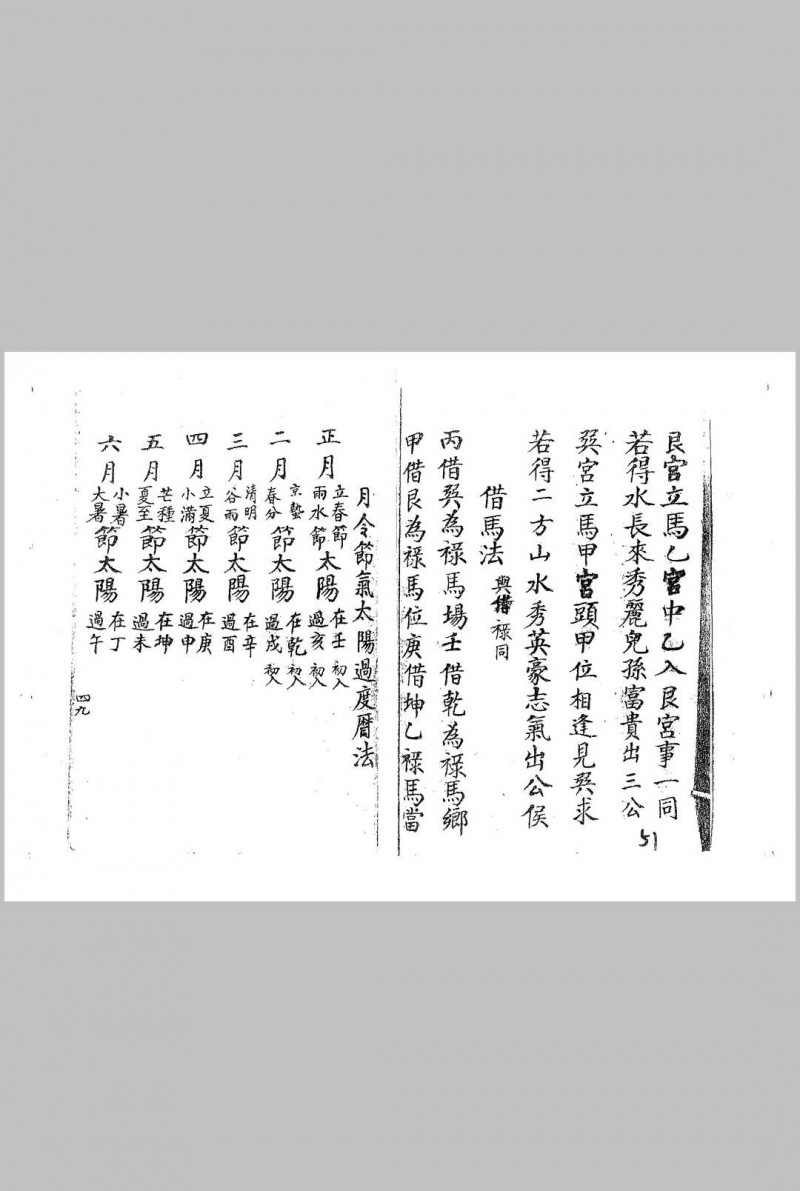 艮宮立馬乙宮中乙入艮宮事一同
若得水長來秀麗兒孫富貴出三公
巽宮立馬甲宮頭甲位相逢見巽求
若得二方山水秀英豪志氣出公侯
借馬法 與借祿同
丙借巽為祿馬場壬借乾為祿馬鄉
甲借艮為祿馬位庚借坤乙祿馬當
月令節氣太陽過度曆法
正月 立春節 雨水節 太陽 在壬初入 過亥初入
二月 京蟄 春分 節太陽 在乾初入 過戌初入
三月 清明 谷雨 節太陽 在辛 過酉
四月 立夏 小滿 節太陽 在庚 過申
五月 芒種 夏至 節太陽 在坤 過未
六月 小暑 大暑 節太陽 在丁 過午
四九
51